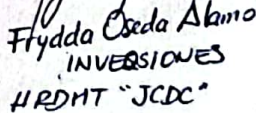 Frydda Oseda Alamo
INVERSIONES
HRDMT "JCDC"